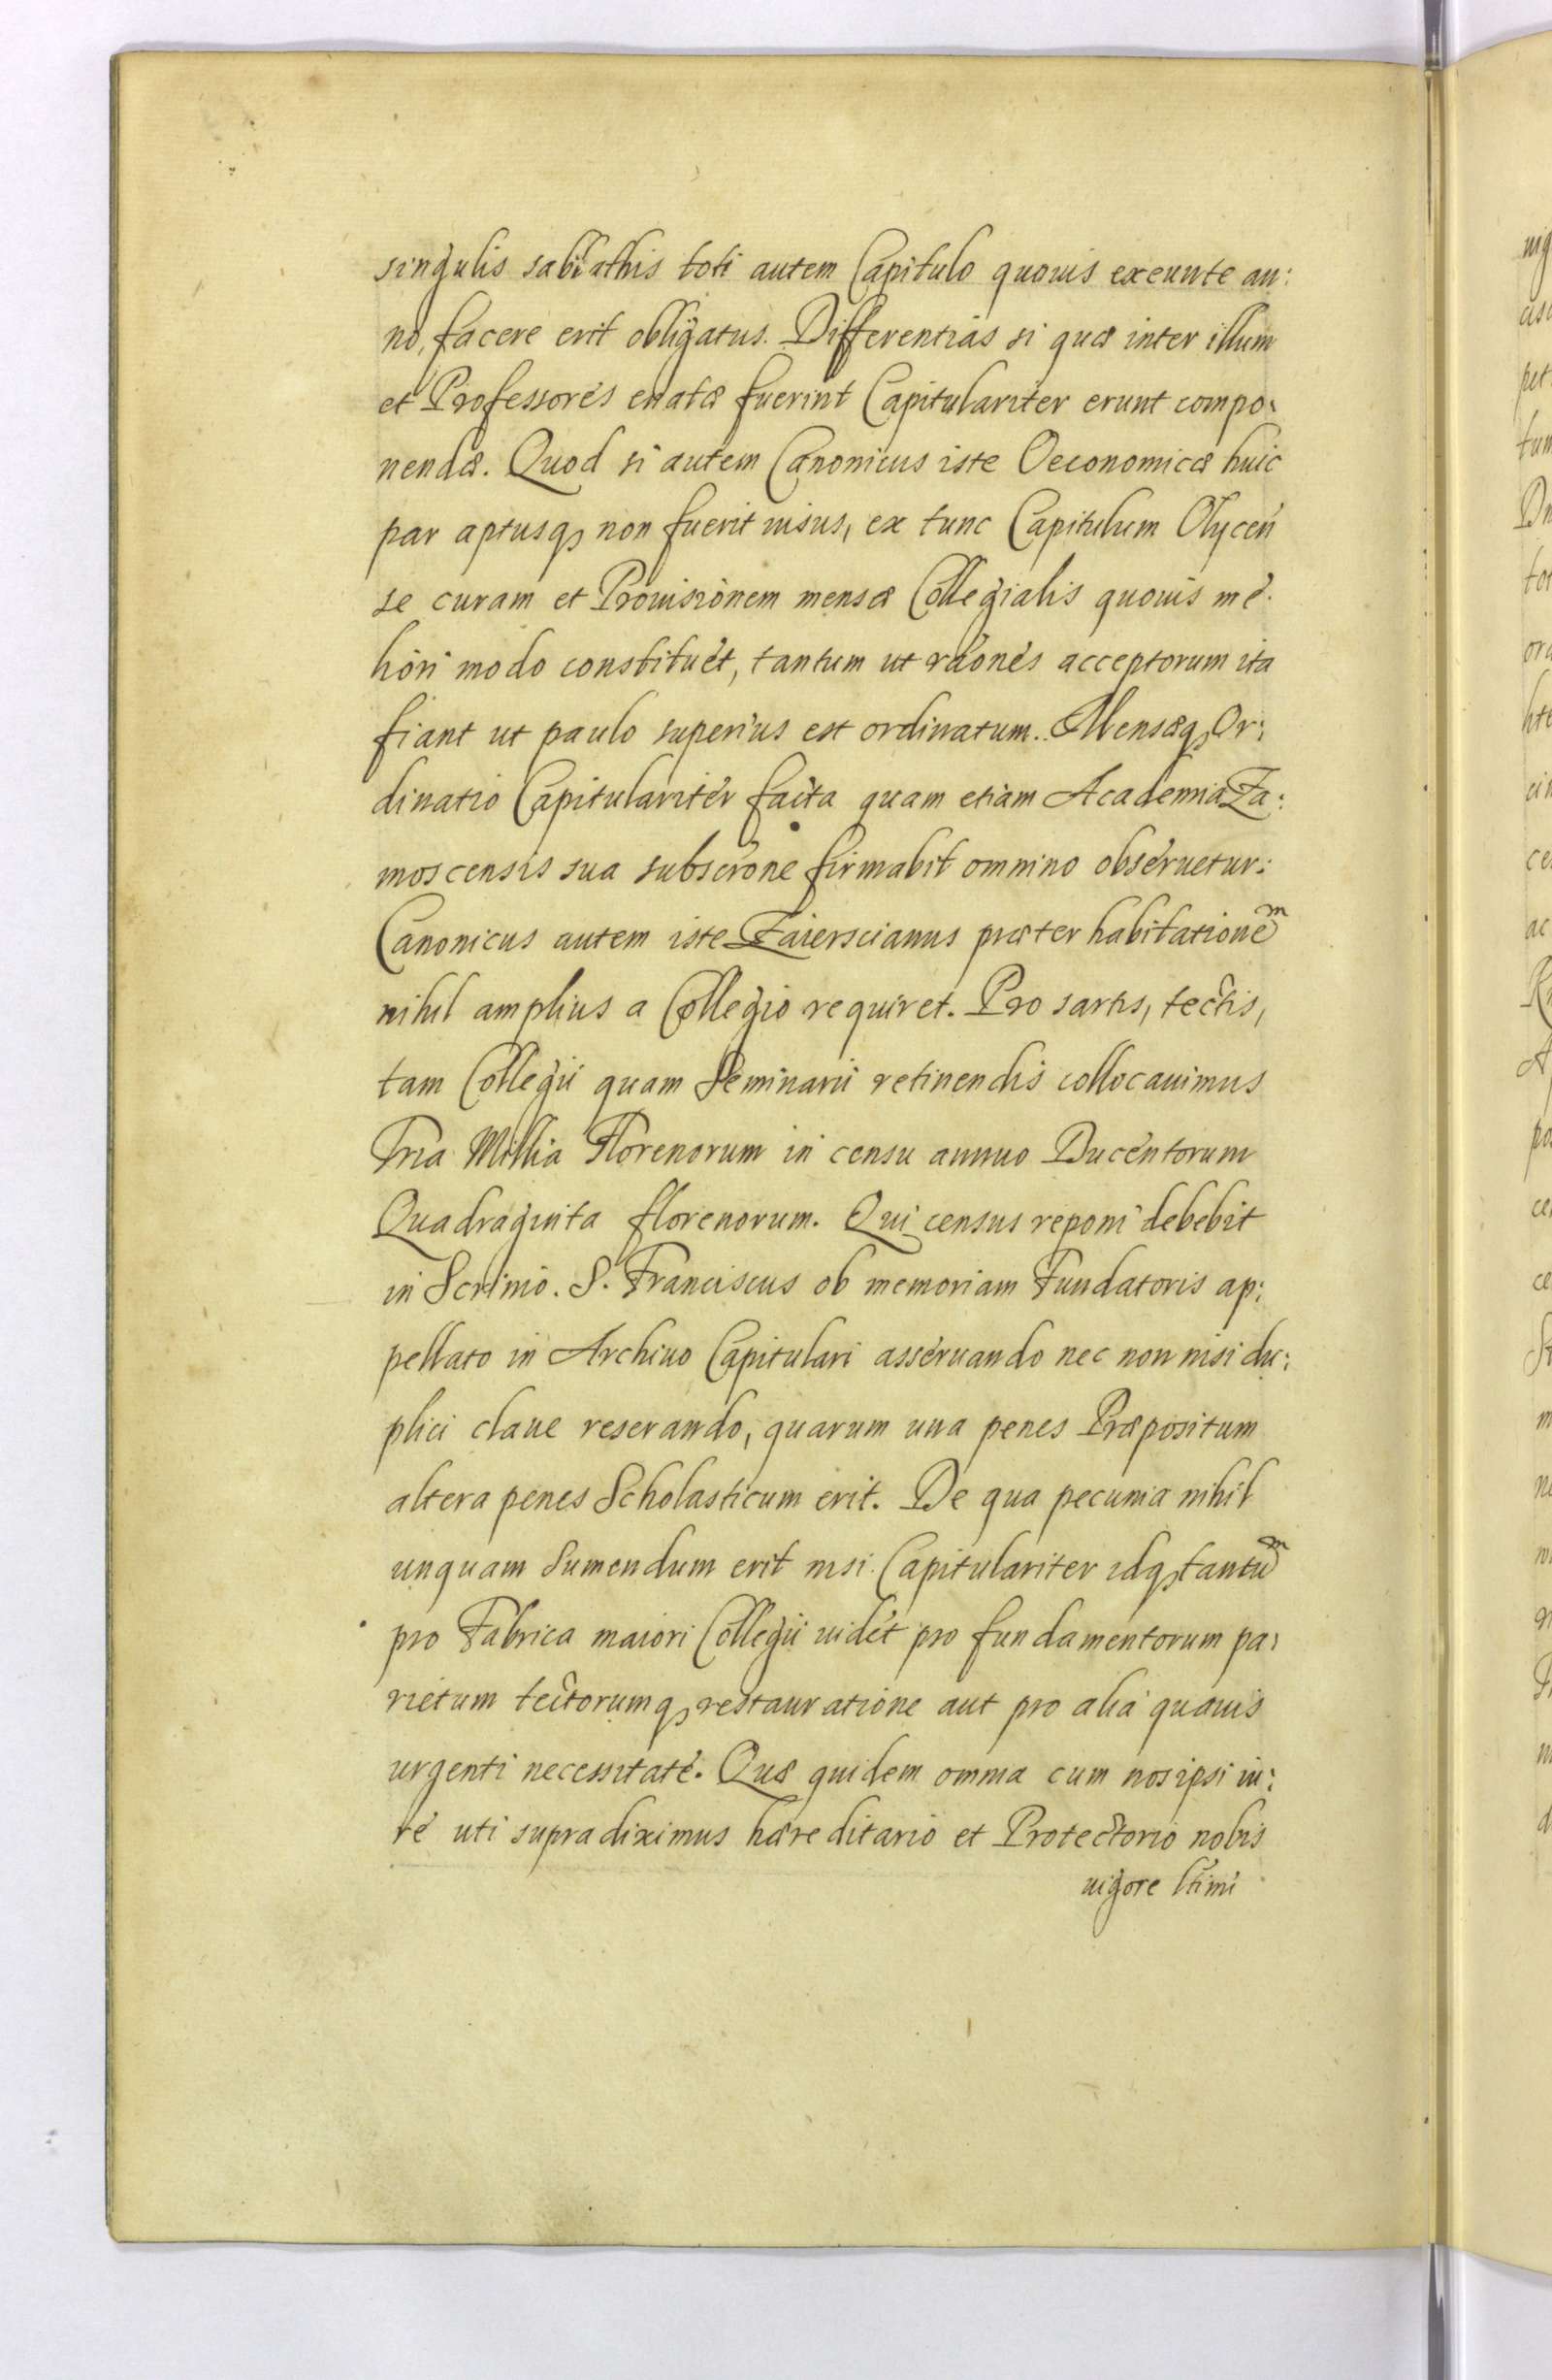 singulis sabbathis toti autem Capitulo quouis exeunte an:
no, facere erit obligatus. Differentias si quæ inter illum
et Professores enatæ fuerint Capitulariter erunt compo:
nendæ. Quod si autem Canonicus iste Oeconomicæ huic
par aptusq₃ non fuerit uisus, ex tunc Capitulum Olycen
se curam et Prouisionem mensæ Collegialis quouis me:
liori modo constituet, tantum ut raones acceptorum ita
fiant ut paulo superius est ordinatum. Mensæq₃ Or:
dinatio Capitulariter facta quam etiam Academia Za:
moscensis sua subscrone firmabit omnino obseruetur:
Canonicus autem iste Zaierscianus præter habitationem
nihil amplius a Collegio requiret. Pro sartis, tectis,
tam Collegii quam Seminarii retinendis collocauimus
Tria Millia Florenorum in censu annuo Ducentorum
Quadraginta florenorum. Qui census reponi debebit
in Scrinio. S. Franciscus ob memoriam Fundatoris ap:
pellato in Archiuo Capitulari asseruando nec non nisi du:
plici claue reserando, quarum una penes Præpositum
altera penes Scholasticum erit. De qua pecunia nihil
unquam sumendum erit nisi Capitulariter idq₃ tantum
pro Fabrica maiori Collegii uidet pro fundamentorum pa:
rietum tectorumq₃ restauratione aut pro alia quauis
urgenti necessitate. Quæ quidem omnia cum nos ipsi iu:
re uti supra diximus hæreditario et Protectorio nobis
uigore ltimi